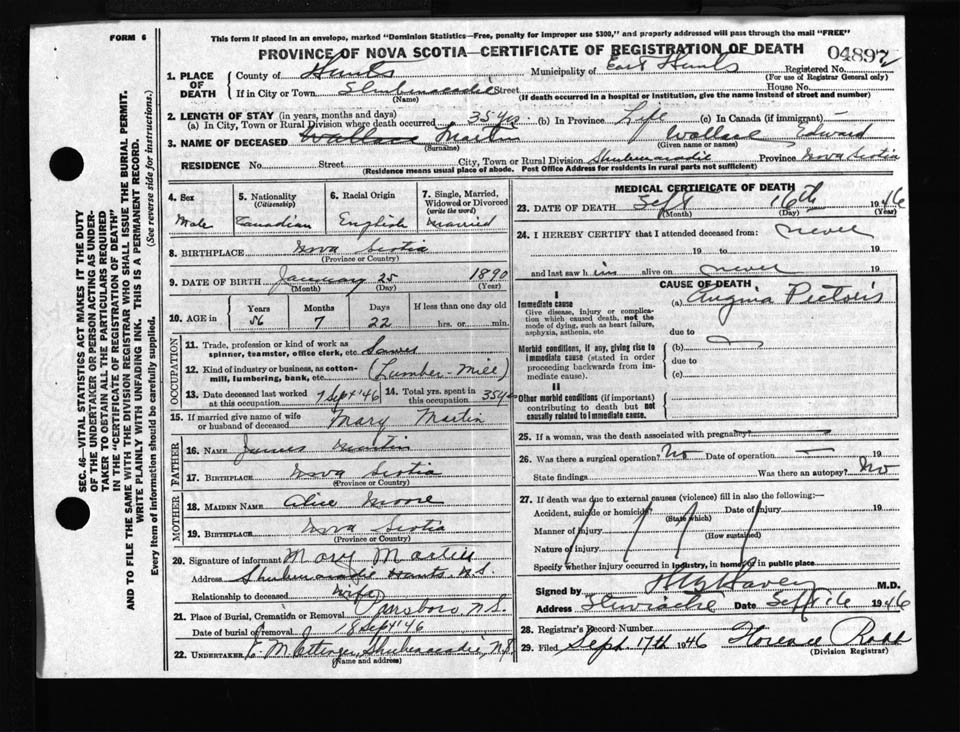 FORM 6
This form if placed in an envelope, marked "Dominion Statistics—Free, penalty for improper use $300," and properly addressed will pass through the mail "FREE"
PROVINCE OF NOVA SCOTIA—CERTIFICATE OF REGISTRATION OF DEATH
04897
1. PLACE OF DEATH
County of Hants Municipality of East Hants Registered No.
(For use of Registrar General only)
If in City or Town Shubenacadie Street House No.
(Name) (If death occurred in a hospital or institution, give the name instead of street and number)
2. LENGTH OF STAY (in years, months and days)
(a) In City, Town or Rural Division where death occurred 35 yrs. (b) In Province Life (c) In Canada (if immigrant)
3. NAME OF DECEASED Wallace Martin Wallace Edward
(Surname) (Given name or names)
RESIDENCE No. Street City, Town or Rural Division Shubenacadie Province Nova Scotia
(Residence means usual place of abode. Post Office Address for residents in rural parts not sufficient)
4. Sex
Male
5. Nationality
(Citizenship)
Canadian
6. Racial Origin
English
7. Single, Married, Widowed or Divorced
(write the word)
Married
8. BIRTHPLACE Nova Scotia
(Province or Country)
9. DATE OF BIRTH January 25 1890
(Month) (Day) (Year)
10. AGE in
Years Months Days If less than one day old
56 7 22 hrs. or min.
OCCUPATION
11. Trade, profession or kind of work as
spinner, teamster, office clerk, etc.
12. Kind of industry or business, as cotton-
mill, lumbering, bank, etc. (Lumber-Mill)
13. Date deceased last worked at this occupation 7 Sept '46
14. Total yrs. spent in this occupation 35 yrs
15. If married give name of wife
or husband of deceased Mary Martin
FATHER
16. NAME James Martin
17. BIRTHPLACE Nova Scotia
(Province or Country)
MOTHER
18. MAIDEN NAME Alice Moore
19. BIRTHPLACE Nova Scotia
(Province or Country)
20. Signature of informant Mary Martin
Address Shubenacadie Hants N.S.
Relationship to deceased Wife
21. Place of Burial, Cremation or Removal Parrsboro, N.S.
Date of burial or removal 18 Sept '46
22. UNDERTAKER Shubenacadie, N.S.
(Name and address)
MEDICAL CERTIFICATE OF DEATH
23. DATE OF DEATH Sept 16th 1946
(Month) (Day) (Year)
24. I HEREBY CERTIFY that I attended deceased from never
19 to 19
and last saw him alive on never 19
CAUSE OF DEATH
I
Immediate cause
Give disease, injury or complication which caused death, not the mode of dying, such as heart failure, asphyxia, asthenia, etc
(a) Angina Pectoris
due to
Morbid conditions, if any, giving rise to immediate cause (stated in order proceeding backwards from immediate cause).
(b)
due to
(c)
II
Other morbid conditions (if important) contributing to death but not causally related to immediate cause.
25. If a woman, was the death associated with pregnancy?
26. Was there a surgical operation? No Date of operation —
State findings Was there an autopsy? No
27. If death was due to external causes (violence) fill in also the following:—
Accident, suicide or homicide? Date of Injury 19
(State which)
Manner of Injury
(How sustained)
Nature of injury
Specify whether injury occurred in industry, in home, or in public place
Signed by M.D.
Address Stewiacke Date Sept 16 1946
28. Registrar's Record Number
29. Filed Sept. 17th 1946 Florence Robb
(Division Registrar)
SEC. 46—VITAL STATISTICS ACT MAKES IT THE DUTY
OF THE UNDERTAKER OR PERSON ACTING AS UNDER-
TAKER TO OBTAIN ALL THE PARTICULARS REQUIRED
IN THE "CERTIFICATE OF REGISTRATION OF DEATH"
AND TO FILE THE SAME WITH THE DIVISION REGISTRAR WHO SHALL ISSUE THE BURIAL PERMIT.
WRITE PLAINLY WITH UNFADING INK. THIS IS A PERMANENT RECORD.
Every item of information should be carefully supplied. (See reverse side for instructions.)